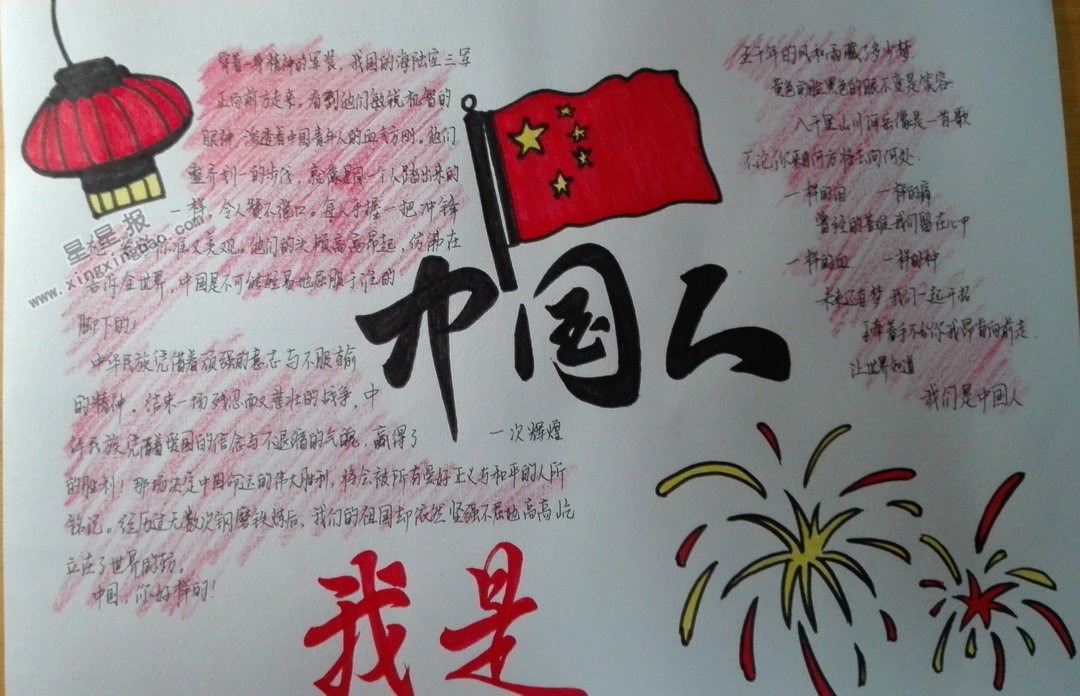 穿着一身精神的军装，我国的海陆空三军
正向前方走来。看到他们敏锐机智的
眼神，渗透着中国青年人的血气方刚。他们
整齐划一的步伐，就像是同一个人踏出来的
一样，令人赞不绝口。每人手握一把冲锋
标准又美观。他们的头颅高高昂起，仿佛在
告诉全世界，中国是不可能轻易地屈服于谁的
脚下的！
中华民族凭借着顽强的意志与不服输
的精神，结束一场残忍而又悲壮的战争，中
华民族凭借着爱国的信念与不退缩的气魄，赢得了 一次辉煌
的胜利！那场决定中国命运的伟大胜利，将会被所有爱好正义与和平的人所
铭记。经历过无数次钢磨铁炼后，我们的祖国却依然坚强不屈地高高屹
立在了世界的
中国，你好样的！
中国人
我是
五千年的风和雨藏了多少梦
黄色的脸黑色的眼不变是笑容
八千里山川河岳像是一首歌
不论你来自何方将去向何处
一样的泪 一样的痛
曾经的苦难我们留在心中
一样的血 一样的种
未来还有梦我们一起开拓
手牵着手不分你我昂首向前走
让世界知道
我们是中国人
星星报
www.xingxingbao.com